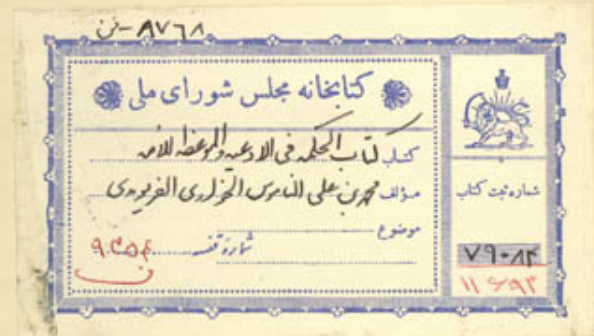 ۸۷۶۸ - ف
کتابخانه مجلس شورای ملی
کتاب کتاب الحکمه فی الادعیه والموعظه للامه
مؤلف محمد بن علی الناموس الخواری الفریومدی
موضوع
شماره قفسه
شماره ثبت کتاب
۷۹۰۸۲